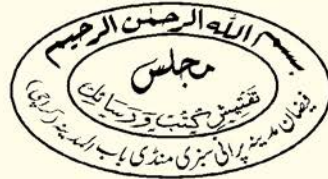 بسم اللہ الرحمٰن الرحیم
مجلس
تفتیشِ کتب و رسائل
فیضانِ مدینہ پرانی سبزی منڈی باب المدینہ (کراچی)